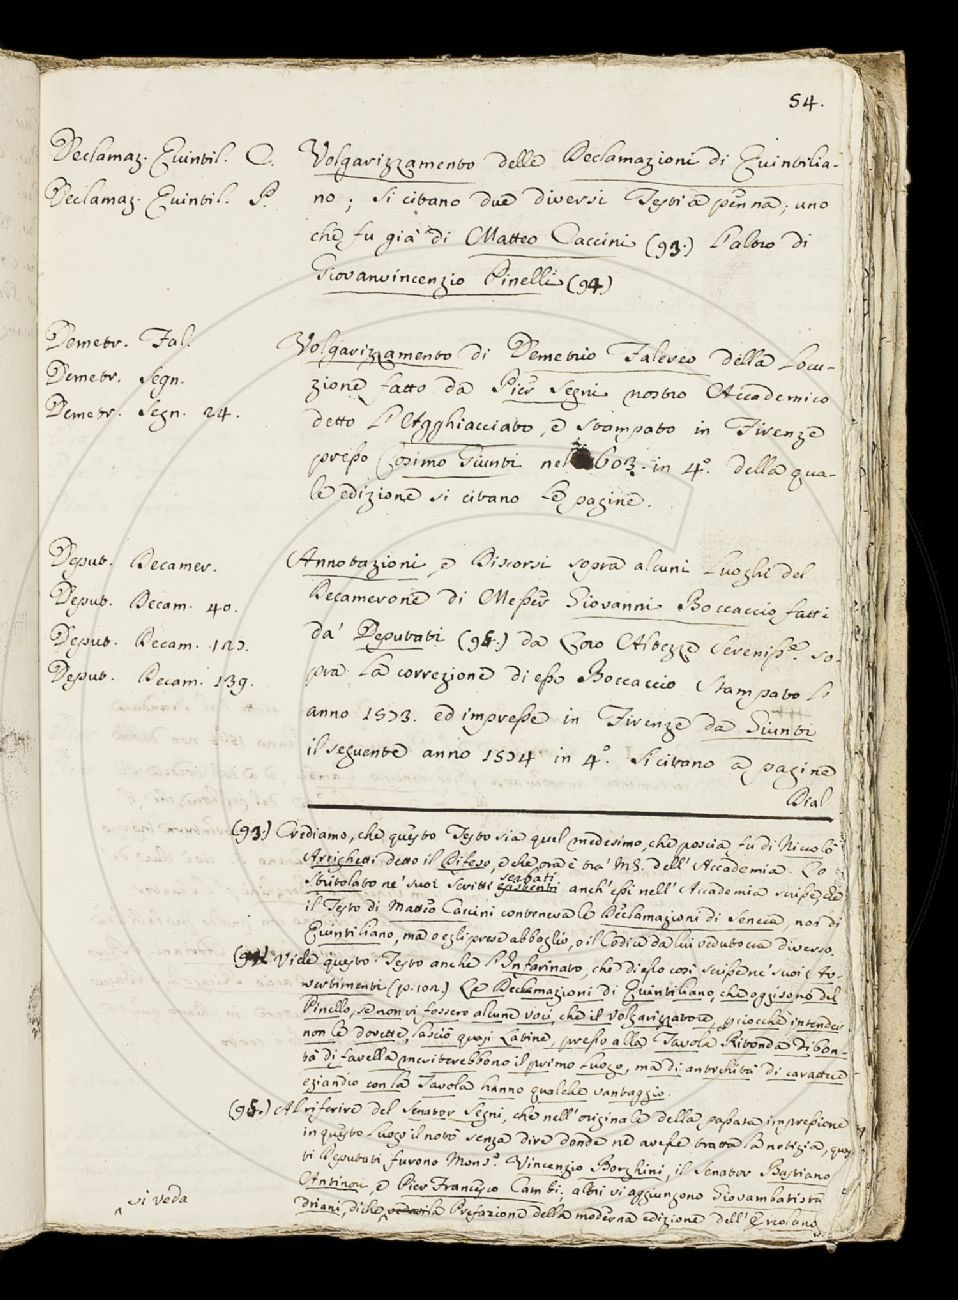 54.
Declamaz. Quintil. C.
Declamaz. Quintil. P.
Volgarizzamento delle Declamazioni di Quintilia-
no; si citano due diversi Testi a penna; uno
che fu già di Matteo Caccini (93.) l'altro di
Giovanvincenzio Pinelli (94)
Demetr. Fal.
Demetr. Segn.
Demetr. Segn. 24.
Volgarizzamento di Demetrio Falereo della Locu-
zione fatto da Pier Segni nostro Accademico
detto l'Agghiacciato, e stampato in Firenze
presso Cosimo Giunti nel 1603. in 4°. della qua-
le edizione si citano le pagine.
Deput. Decamer.
Deput. Decam. 40.
Deput. Decam. 127.
Deput. Decam. 139.
Annotazioni, e Discorsi sopra alcuni Luoghi del
Decamerone di Messer Giovanni Boccaccio fatti
da' Deputati (95.) da Loro Altezze Sereniss.e so-
pra la correzione di esso Boccaccio Stampato l'
anno 1573. ed impresse in Firenze da Giunti
il seguente anno 1574 in 4°. Si citano a pagine
Dial
(93.) Crediamo, che questo Testo sia quel medesimo, che poscia fu di Niccolò
Arrighetti detto il Difeso, e che ora è tra' MS. dell'Accademia. Lo
Stritolato ne' suoi Scritti esistenti serbati anch'essi nell'Accademia scrisse, che
il Testo di Matteo Caccini conteneva le Declamazioni di Seneca, non di
Quintiliano, ma o egli prese abbaglio, o il Codice da lui veduto era diverso.
(94) Vide questo Testo anche l'Infarinato, che di esso così scrisse ne' suoi Av-
vertimenti (p. 102.) Le Declamazioni di Quintiliano, che oggi sono del
Pinello, se non vi fossero alcune voci, che il volgarizzatore, perciocchè intender
non le dovette, lasciò quasi Latine, presso alla Tavola Ritonda di bon-
tà di favella meriterebbono il primo luogo, ma di antichità di carattere
eziandio con la Tavola hanno qualche vantaggio.
(95.) Al riferire del Senator Segni, che nell'originale della passata impressione
in questo luogo il notò senza dire donde ne avesse tratta la notizia, ques
ti Deputati furono Mons.r Vincenzio Borghini, il Senator Bastiano
Antinori, e Pier Francesco Cambi; altri vi aggiungono Giovambatista
driani, di che vedasi la Prefazione della moderna edizione dell'Ercolano
si veda